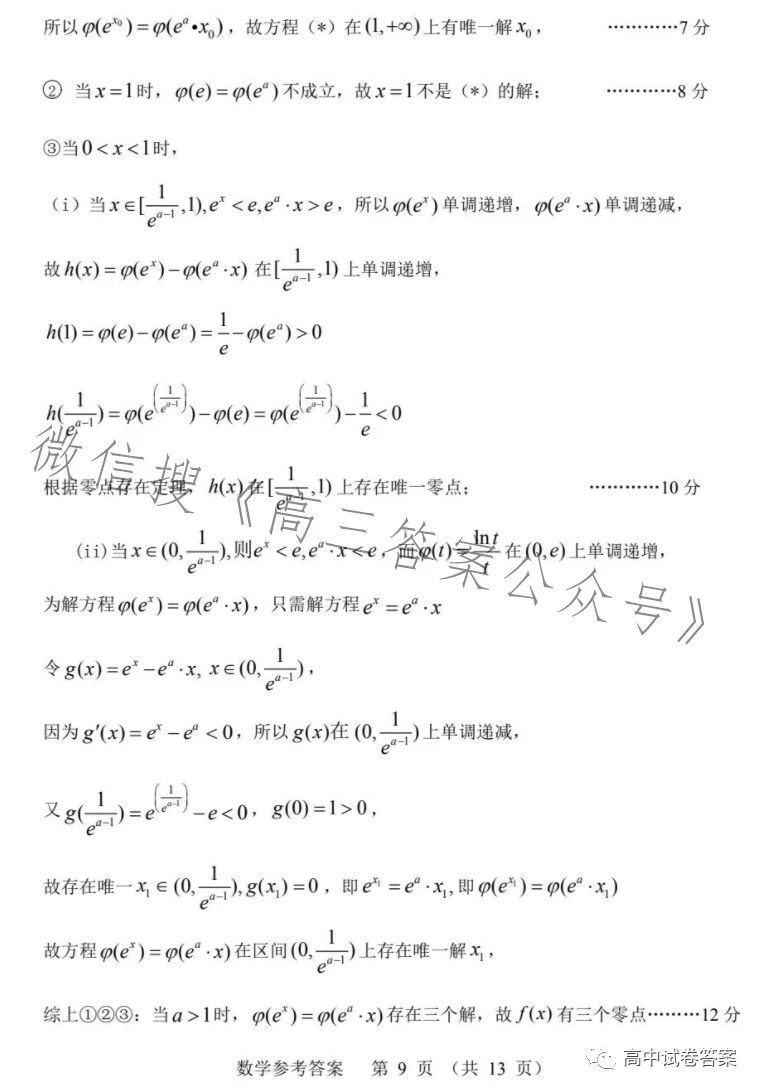 所以φ(e^{x₀})=φ(e^a•x₀)，故方程（*）在(1,+∞)上有唯一解x₀， …………7 分
② 当x=1时，φ(e)=φ(e^a)不成立，故x=1不是（*）的解； …………8 分
③当0<x<1时，
（i）当x∈[1/e^{a-1},1),e^x<e,e^a·x>e，所以φ(e^x)单调递增，φ(e^a·x)单调递减，
故h(x)=φ(e^x)-φ(e^a·x) 在[1/e^{a-1},1)上单调递增，
h(1)=φ(e)-φ(e^a)=1/e-φ(e^a)>0
h(1/e^{a-1})=φ(e^{(1/e^{a-1})})-φ(e)=φ(e^{(1/e^{a-1})})-1/e<0
根据零点存在定理，h(x)在[1/e^{a-1},1)上存在唯一零点； …………10 分
(ii)当x∈(0,1/e^{a-1}),则e^x<e,e^a·x<e，而φ(t)=ln t/t 在(0,e)上单调递增，
为解方程φ(e^x)=φ(e^a·x)，只需解方程e^x=e^a·x
令g(x)=e^x-e^a·x, x∈(0,1/e^{a-1})，
因为g′(x)=e^x-e^a<0，所以g(x)在(0,1/e^{a-1})上单调递减，
又g(1/e^{a-1})=e^{(1/e^{a-1})}-e<0，g(0)=1>0，
故存在唯一x₁∈(0,1/e^{a-1}),g(x₁)=0，即e^{x₁}=e^a·x₁,即φ(e^{x₁})=φ(e^a·x₁)
故方程φ(e^x)=φ(e^a·x)在区间(0,1/e^{a-1})上存在唯一解x₁，
综上①②③：当a>1时，φ(e^x)=φ(e^a·x)存在三个解，故f(x)有三个零点………12 分
数学参考答案 第 9 页 （共 13 页）
微信搜《高三答案公众号》
高中试卷答案